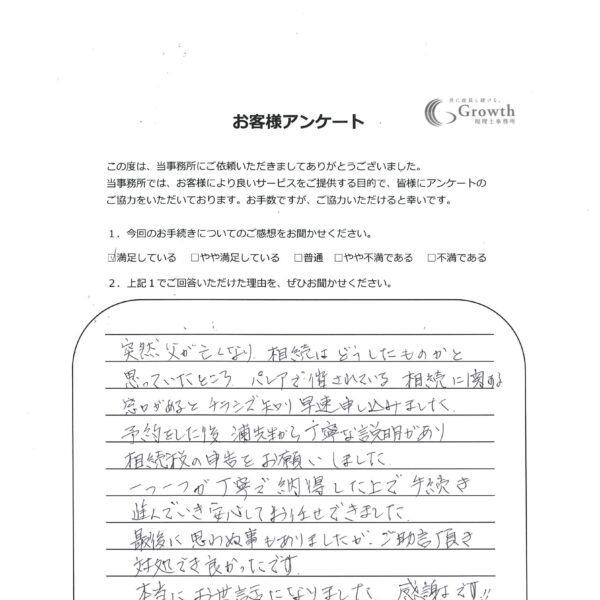 共に成長し続ける。
Growth
税理士事務所
お客様アンケート
この度は、当事務所にご依頼いただきましてありがとうございました。
当事務所では、お客様により良いサービスをご提供する目的で、皆様にアンケートの
ご協力をいただいております。お手数ですが、ご協力いただけると幸いです。
1．今回のお手続きについてのご感想をお聞かせください。
☑満足している □やや満足している □普通 □やや不満である □不満である
2．上記1でご回答いただけた理由を、ぜひお聞かせください。
突然父が亡くなり、相続はどうしたものかと
思っていたところ パレアで催されている 相続に関する
窓口があるとチラシで知り早速申し込みました。
予約をした後 浦先生から丁寧な説明があり
相続税の申告をお願いしました
一つ一つが丁寧で納得した上で手続き
進んでいき安心してお任せできました
最後に思わぬ事もありましたが、ご助言頂き
対処でき良かったです。
本当にお世話になりました 感謝です!!